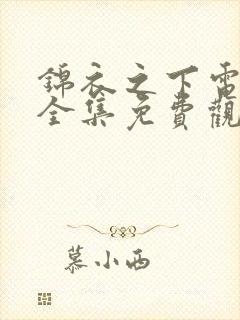 錦衣之下電
全集免費觀
慕小西